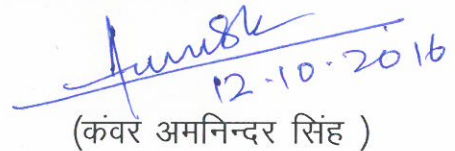 12-10-2016
(कंवर अमनिन्दर सिंह )